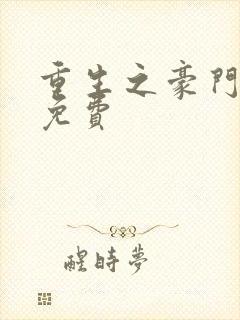 重生之豪門
免費
醒時夢